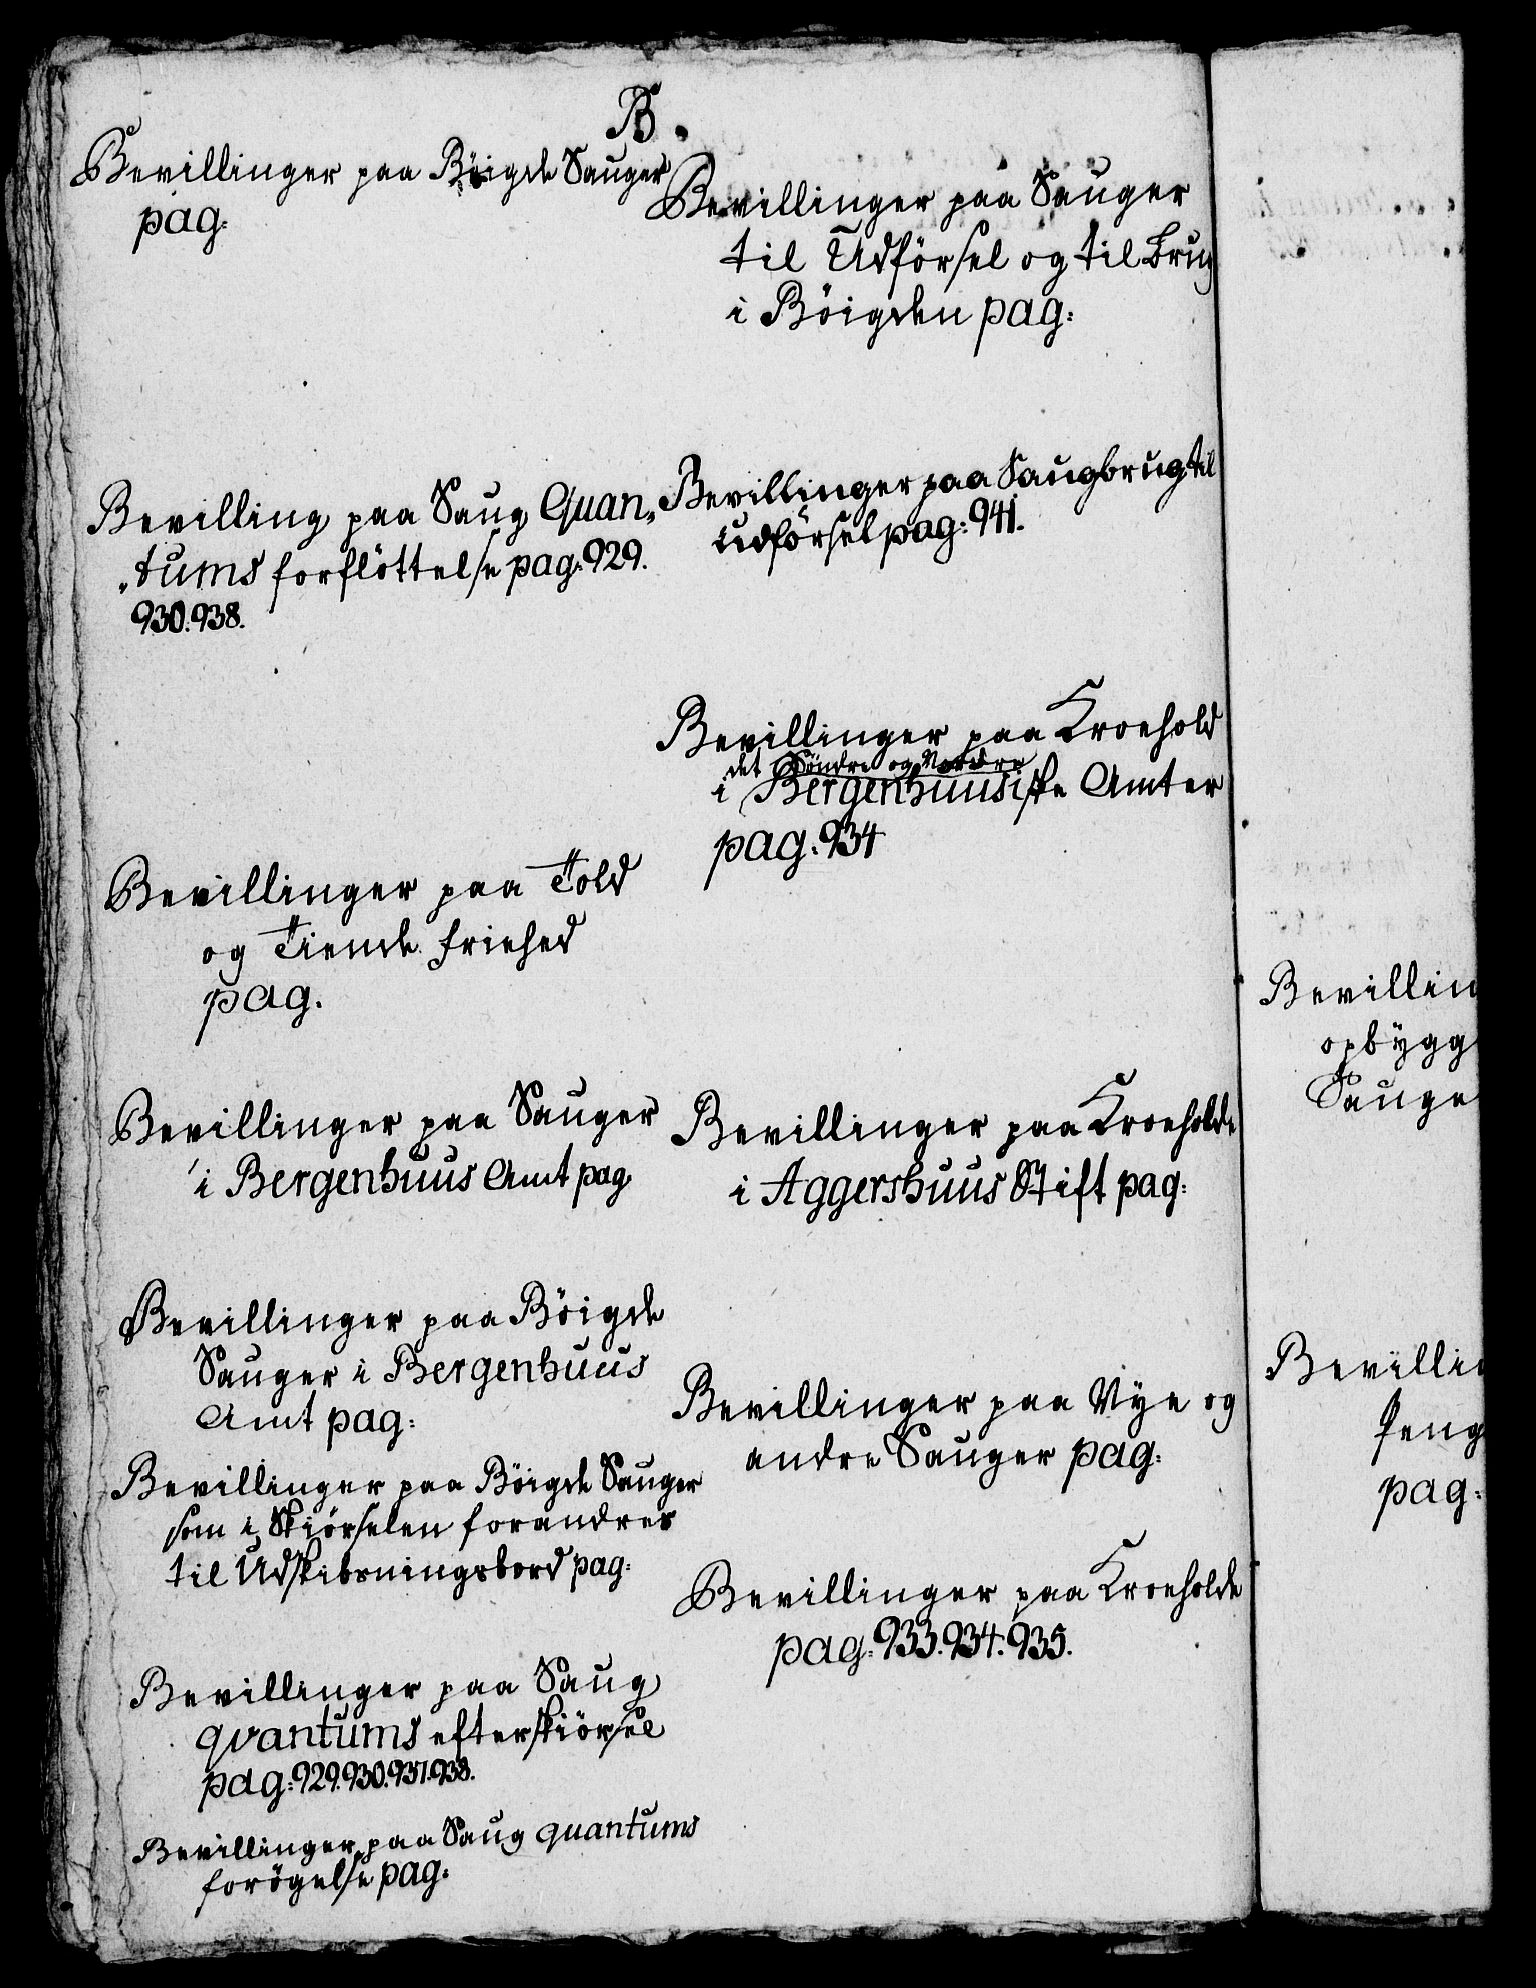 B.
Bevillinger paa Böigde Sauger
pag:
Bevilling paa Saug Quan„
„tums forflöttelse pag: 929.
930. 938.
Bevillinger paa Told
og Tiende friehed
pag.
Bevillinger paa Sauger
i Bergenhuus Amt pag
Bevillinger paa Böigde
Sauger i Bergenhuus
Amt pag:
Bevillinger paa Böigde Sauger
som i Skiörselen forandres
til Udskibsningsbord pag:
Bevillinger paa Saug
qvantums efterskiörsel
pag: 929. 930. 937. 938.
Bevillinger paa Saug quantums
forögelse pag:
Bevillinger paa Sauger
til Udförsel og til Brug
i Böigden pag:
Bevillinger paa Saugbrug til
udförsel pag: 941.
Bevillinger paa Kroehold
det Söndre og Nordre
i Bergenhuusiske Amter
pag: 934
Bevillinger paa Kroeholde
i Aggershuus Stift pag:
Bevillinger paa Nye og
andre Sauger pag:
Bevillinger paa Kroeholde
pag: 933. 934. 935.
Bevillin
opbygg
Sauge
Bevillin
Peng
pag: